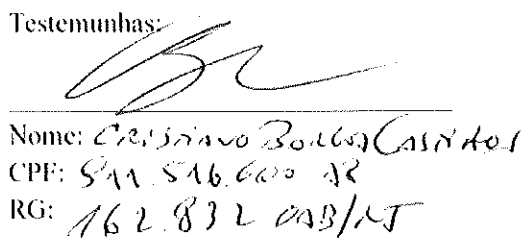 Testemunhas:
Nome: CRISTIANO BORGES CASTILHOS
CPF: 911.516.600
RG: 162.832 OAB/RJ